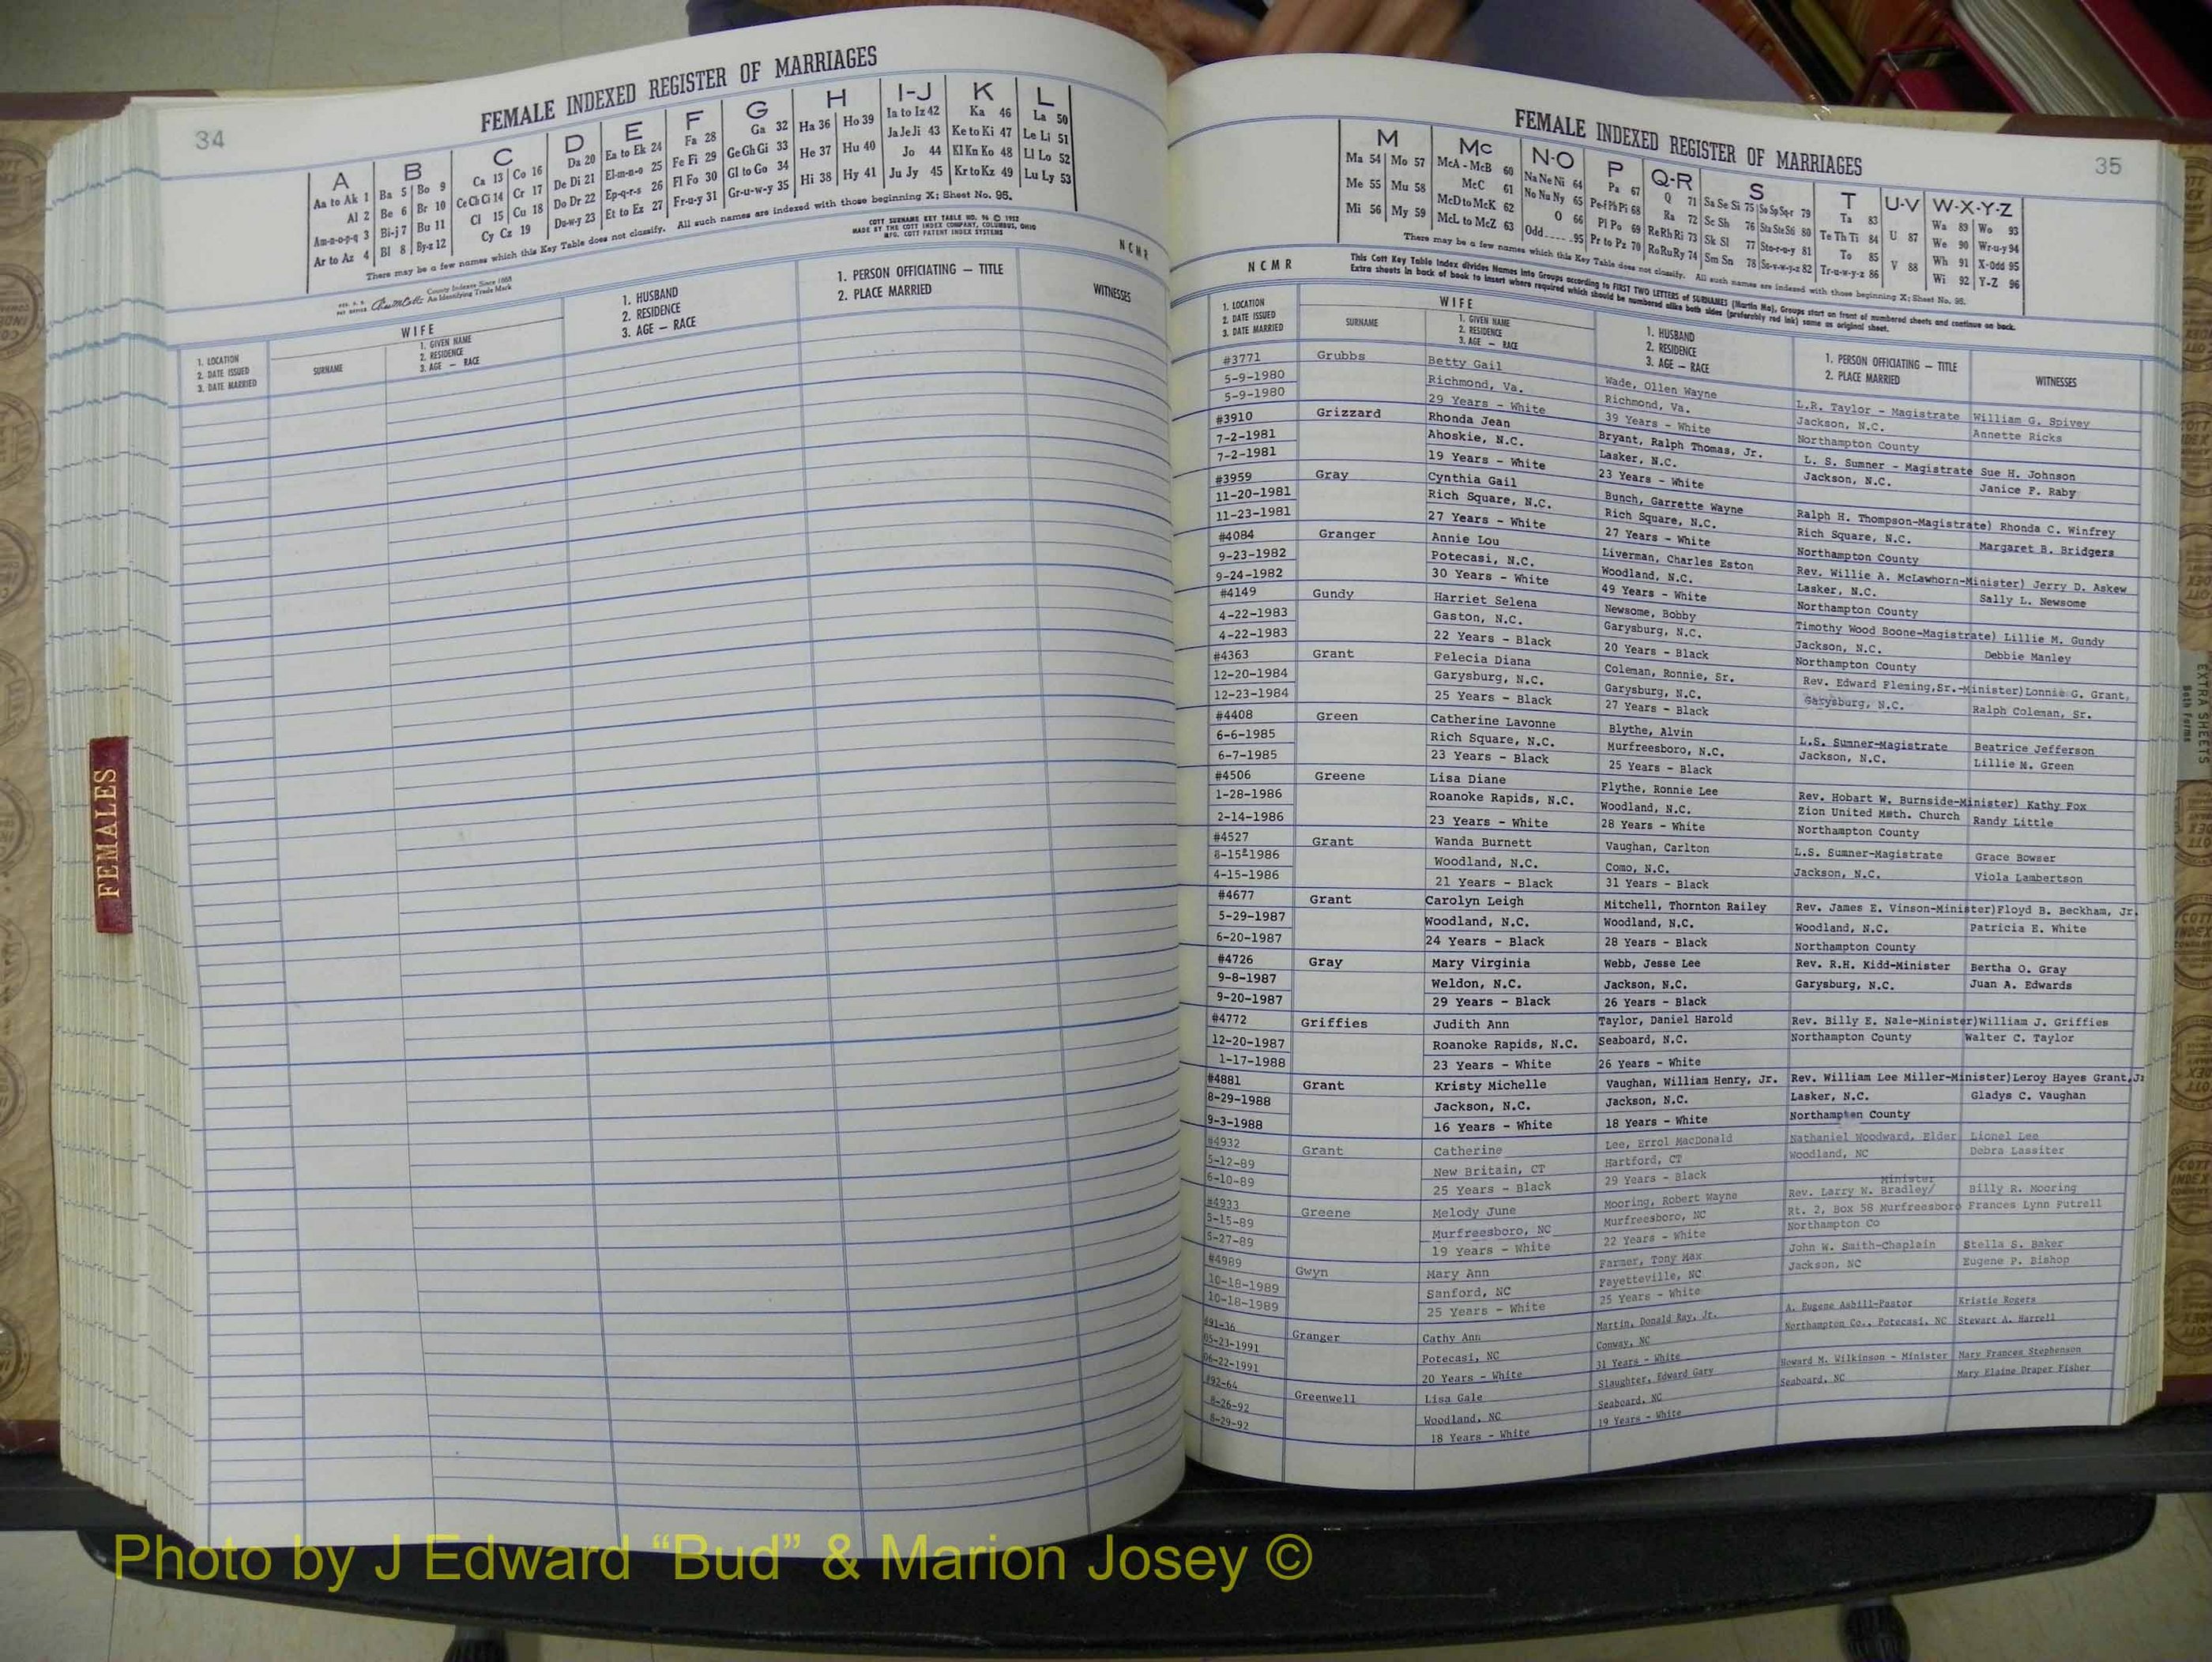 34
FEMALE INDEXED REGISTER OF MARRIAGES
A
Aa to Ak 1
Al 2
Am-n-o-p-q 3
Ar to Az 4
B
Ba 5 Bo 9
Be 6 Br 10
Bi-j 7 Bu 11
Bl 8 By-z 12
C
Ca 13 Co 16
Ce Ch Ci 14 Cr 17
Cl 15 Cu 18
Cy Cz 19
D
Da 20
De Di 21
Do Dr 22
Du-w-y 23
E
Ea to Ek 24
El-m-n-o 25
Ep-q-r-s 26
Et to Ez 27
F
Fa 28
Fe Fi 29
Fl Fo 30
Fr-u-y 31
G
Ga 32
Ge Gh Gi 33
Gl to Go 34
Gr-u-w-y 35
H
Ha 36 Ho 39
He 37 Hu 40
Hi 38 Hy 41
I-J
Ia to Iz 42
Ja Je Ji 43
Jo 44
Ju Jy 45
K
Ka 46
Ke to Ki 47
Kl Kn Ko 48
Kr to Kz 49
L
La 50
Le Li 51
Ll Lo 52
Lu Ly 53
There may be a few names which this Key Table does not classify. All such names are indexed with those beginning X; Sheet No. 95.
County Indexes Since 1888
An Identifying Trade Mark
COTT SURNAME KEY TABLE NO. 96 © 1952
MADE BY THE COTT INDEX COMPANY, COLUMBUS, OHIO
MFG. COTT PATENT INDEX SYSTEMS
N C M R
1. LOCATION
2. DATE ISSUED
3. DATE MARRIED
WIFE
SURNAME
1. GIVEN NAME
2. RESIDENCE
3. AGE — RACE
1. HUSBAND
2. RESIDENCE
3. AGE — RACE
1. PERSON OFFICIATING — TITLE
2. PLACE MARRIED
WITNESSES
FEMALES
35
FEMALE INDEXED REGISTER OF MARRIAGES
M
Ma 54 Mo 57
Me 55 Mu 58
Mi 56 My 59
Mc
McA - McB 60
McC 61
McD to McK 62
McL to McZ 63
N-O
Na Ne Ni 64
No Nu Ny 65
O 66
Odd 95
P
Pa 67
Pe-f Ph Pi 68
Pl Po 69
Pr to Pz 70
Q-R
Q 71
Ra 72
Re Rh Ri 73
Ro Ru Ry 74
S
Sa Se Si 75 So Sp Sq-r 79
Sc Sh 76 Sta Ste Sti 80
Sk Sl 77 Sto-r-u-y 81
Sm Sn 78 Su-v-w-y-z 82
T
Ta 83
Te Th Ti 84
To 85
Tr-u-w-y-z 86
U-V
U 87
V 88
W-X-Y-Z
Wa 89 Wo 93
We 90 Wr-u-y 94
Wh 91 X-Odd 95
Wi 92 Y-Z 96
There may be a few names which this Key Table does not classify. All such names are indexed with those beginning X; Sheet No. 95.
N C M R
This Cott Key Table Index divides Names into Groups according to FIRST TWO LETTERS of SURNAMES (Martin Ma), Groups start on front of numbered sheets and continue on back.
Extra sheets in back of book to insert where required which should be numbered alike both sides (preferably red ink) same as original sheet.
1. LOCATION
2. DATE ISSUED
3. DATE MARRIED
WIFE
SURNAME
1. GIVEN NAME
2. RESIDENCE
3. AGE — RACE
1. HUSBAND
2. RESIDENCE
3. AGE — RACE
1. PERSON OFFICIATING — TITLE
2. PLACE MARRIED
WITNESSES
#3771 Grubbs Betty Gail Wade, Ollen Wayne L.R. Taylor - Magistrate William G. Spivey
5-9-1980 Richmond, Va. Richmond, Va. Jackson, N.C. Annette Ricks
5-9-1980 29 Years - White 39 Years - White Northampton County
#3910 Grizzard Rhonda Jean Bryant, Ralph Thomas, Jr. L. S. Sumner - Magistrate Sue H. Johnson
7-2-1981 Ahoskie, N.C. Lasker, N.C. Jackson, N.C. Janice F. Raby
7-2-1981 19 Years - White 23 Years - White
#3959 Gray Cynthia Gail Bunch, Garrette Wayne Ralph H. Thompson-Magistrate) Rhonda C. Winfrey
11-20-1981 Rich Square, N.C. Rich Square, N.C. Rich Square, N.C. Margaret B. Bridgers
11-23-1981 27 Years - White 27 Years - White Northampton County
#4084 Granger Annie Lou Liverman, Charles Eston Rev. Willie A. McLawhorn-Minister) Jerry D. Askew
9-23-1982 Potecasi, N.C. Woodland, N.C. Lasker, N.C. Sally L. Newsome
9-24-1982 30 Years - White 49 Years - White Northampton County
#4149 Gundy Harriet Selena Newsome, Bobby Timothy Wood Boone-Magistrate) Lillie M. Gundy
4-22-1983 Gaston, N.C. Garysburg, N.C. Jackson, N.C. Debbie Manley
4-22-1983 22 Years - Black 20 Years - Black Northampton County
#4363 Grant Felecia Diana Coleman, Ronnie, Sr. Rev. Edward Fleming,Sr.-Minister)Lonnie G. Grant,
12-20-1984 Garysburg, N.C. Garysburg, N.C. Garysburg, N.C. Ralph Coleman, Sr.
12-23-1984 25 Years - Black 27 Years - Black
#4408 Green Catherine Lavonne Blythe, Alvin L.S. Sumner-Magistrate Beatrice Jefferson
6-6-1985 Rich Square, N.C. Murfreesboro, N.C. Jackson, N.C. Lillie M. Green
6-7-1985 23 Years - Black 25 Years - Black
#4506 Greene Lisa Diane Flythe, Ronnie Lee Rev. Hobart W. Burnside-Minister) Kathy Fox
1-28-1986 Roanoke Rapids, N.C. Woodland, N.C. Zion United Meth. Church Randy Little
2-14-1986 23 Years - White 28 Years - White Northampton County
#4527 Grant Wanda Burnett Vaughan, Carlton L.S. Sumner-Magistrate Grace Bowser
-15-1986 Woodland, N.C. Como, N.C. Jackson, N.C. Viola Lambertson
4-15-1986 21 Years - Black 31 Years - Black
#4677 Grant Carolyn Leigh Mitchell, Thornton Railey Rev. James E. Vinson-Minister)Floyd B. Beckham, Jr.
5-29-1987 Woodland, N.C. Woodland, N.C. Woodland, N.C. Patricia E. White
6-20-1987 24 Years - Black 28 Years - Black Northampton County
#4726 Gray Mary Virginia Webb, Jesse Lee Rev. R.H. Kidd-Minister Bertha O. Gray
9-8-1987 Weldon, N.C. Jackson, N.C. Garysburg, N.C. Juan A. Edwards
9-20-1987 29 Years - Black 26 Years - Black
#4772 Griffies Judith Ann Taylor, Daniel Harold Rev. Billy E. Nale-Minister)William J. Griffies
12-20-1987 Roanoke Rapids, N.C. Seaboard, N.C. Northampton County Walter C. Taylor
1-17-1988 23 Years - White 26 Years - White
#4881 Grant Kristy Michelle Vaughan, William Henry, Jr. Rev. William Lee Miller-Minister)Leroy Hayes Grant,J
8-29-1988 Jackson, N.C. Jackson, N.C. Lasker, N.C. Gladys C. Vaughan
9-3-1988 16 Years - White 18 Years - White Northampton County
#4932 Grant Catherine Lee, Errol MacDonald Nathaniel Woodward, Elder Lionel Lee
5-12-89 New Britain, CT Hartford, CT Woodland, NC Debra Lassiter
6-10-89 25 Years - Black 29 Years - Black
Minister
#4933 Greene Melody June Mooring, Robert Wayne Rev. Larry W. Bradley/ Billy R. Mooring
5-15-89 Murfreesboro, NC Murfreesboro, NC Rt. 2, Box 58 Murfreesboro Frances Lynn Futrell
5-27-89 19 Years - White 22 Years - White Northampton Co
#4989 Gwyn Mary Ann Farmer, Tony Max John W. Smith-Chaplain Stella S. Baker
10-18-1989 Sanford, NC Fayetteville, NC Jackson, NC Eugene P. Bishop
10-18-1989 25 Years - White 25 Years - White
#91-36 Granger Cathy Ann Martin, Donald Ray, Jr. A. Eugene Asbill-Pastor Kristie Rogers
05-23-1991 Potecasi, NC Conway, NC Northampton Co., Potecasi, NC Stewart A. Harrell
06-22-1991 20 Years - White 31 Years - White
#92-64 Greenwell Lisa Gale Slaughter, Edward Gary Howard M. Wilkinson - Minister Mary Frances Stephenson
8-26-92 Woodland, NC Seaboard, NC Seaboard, NC Mary Elaine Draper Fisher
8-29-92 18 Years - White 19 Years - White
EXTRA SHEETS
Both Forms
Photo by J Edward “Bud” & Marion Josey ©